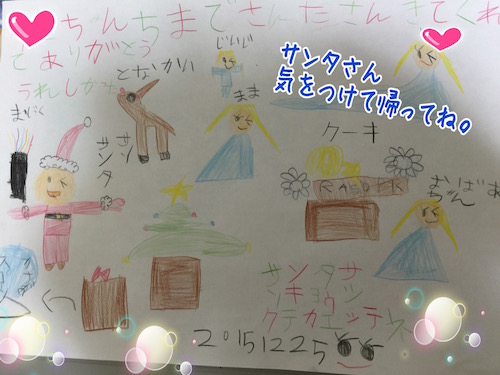 ちんちまでさんたさんきてくれ
てありがとう
うれしかた
じいじ
となかい
まま
サンタさん
気をつけて帰ってね。
まじく
サン
サンタ
ケーキ
おばあ
サンタサ
ンキョウツ
クテカエッテネ
20151225